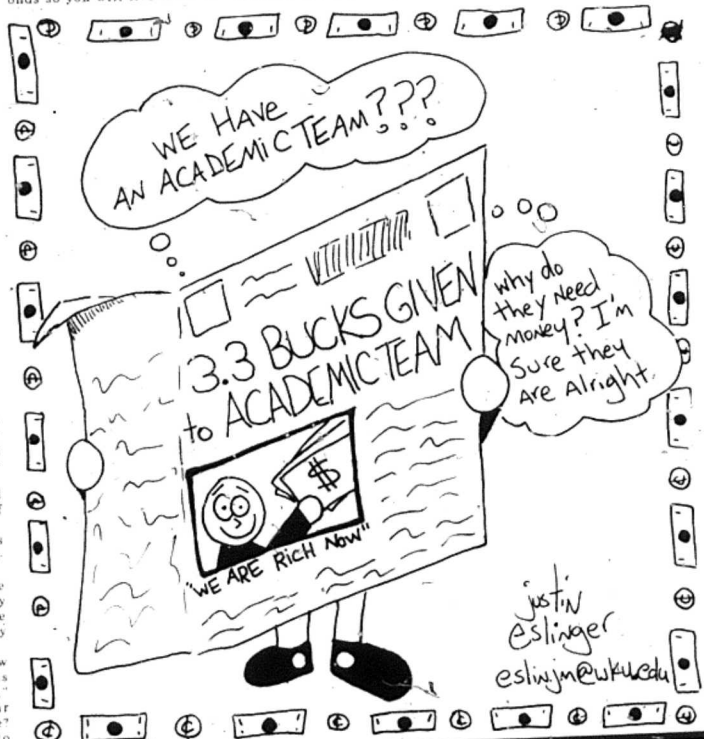 WE HAVE
AN ACADEMIC TEAM???
3.3 BUCKS GIVEN
to ACADEMIC TEAM
$
"WE ARE RICH NOW"
why do
they Need
money? I'm
Sure they
are Alright.
justin
eslinger
eslinjm@wku.edu